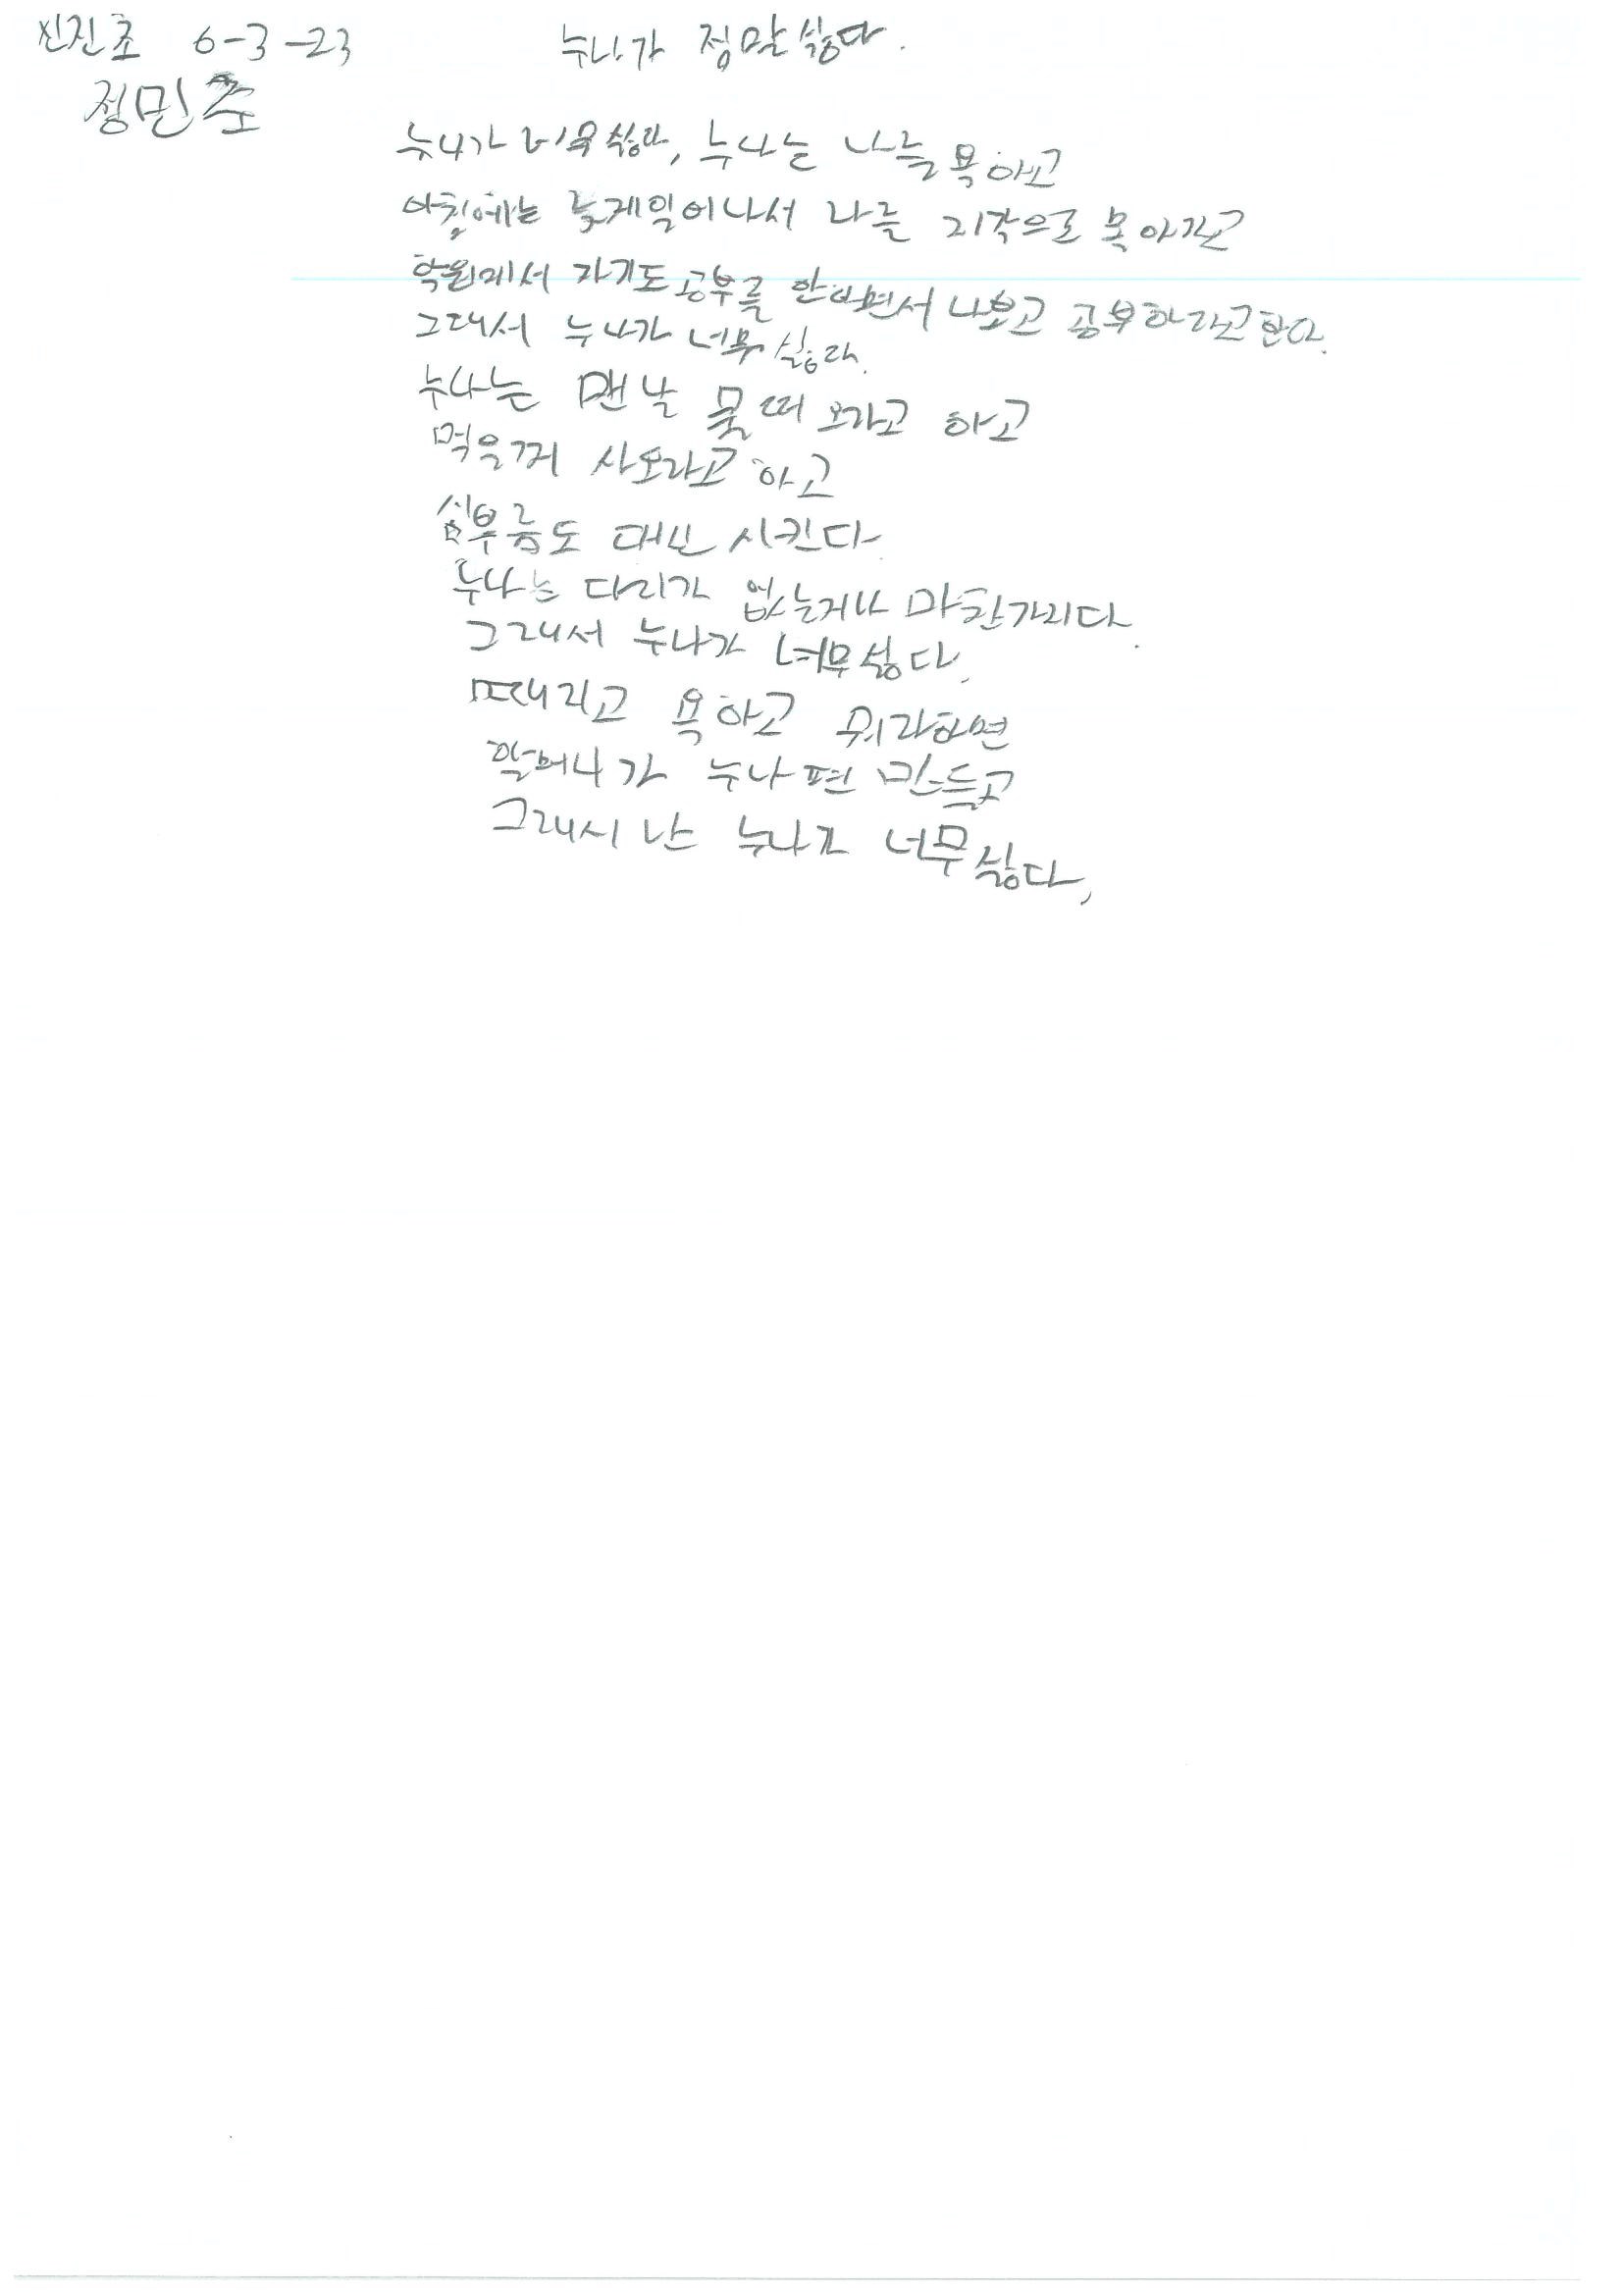 진진초 6-3-23
누나가 정말 싫다.
정민준
누나가 너무 싫다, 누나는 나를 욕하고
아침에는 늦게일어나서 나를 지각으로 몰아가고
학원에서 자기도 공부를 안하면서 나보고 공부하라고한다.
그래서 누나가 너무 싫다.
누나는 맨날 물떠 오라고 하고
먹을꺼 사오라고 하고
심부름도 대신 시킨다
누나는 다리가 없는거나 마찬가지다.
그래서 누나가 너무싫다.
때리고 욕하고 뭐라하면
할머니가 누나편 만들고
그래서 난 누나가 너무싫다,